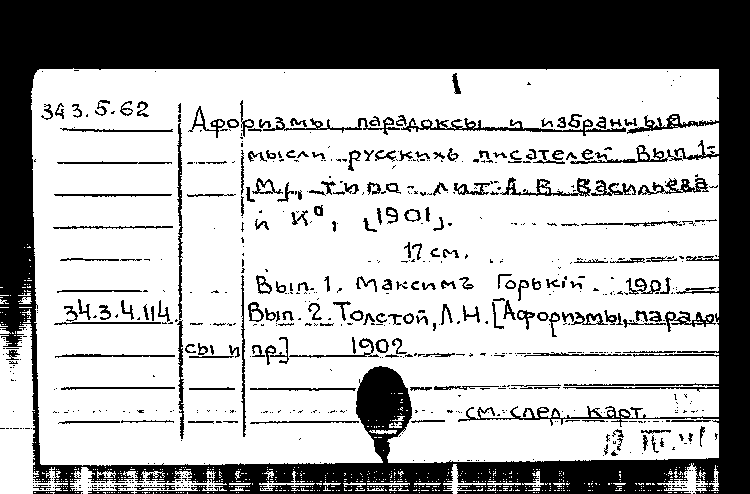 1
343.5.62
Афоризмы, парадоксы и избранныя
мысли русскихъ писателей Вып. 1-
[М.], типо-лит. А. В. Васильева
и Кº, [1901].
17 см.
Вып. 1. Максимъ Горькiй. 1901
34.3.4.114. Вып. 2. Толстой, Л.Н. [Афоризмы, парадок
сы и пр.] 1902
см. след. карт.